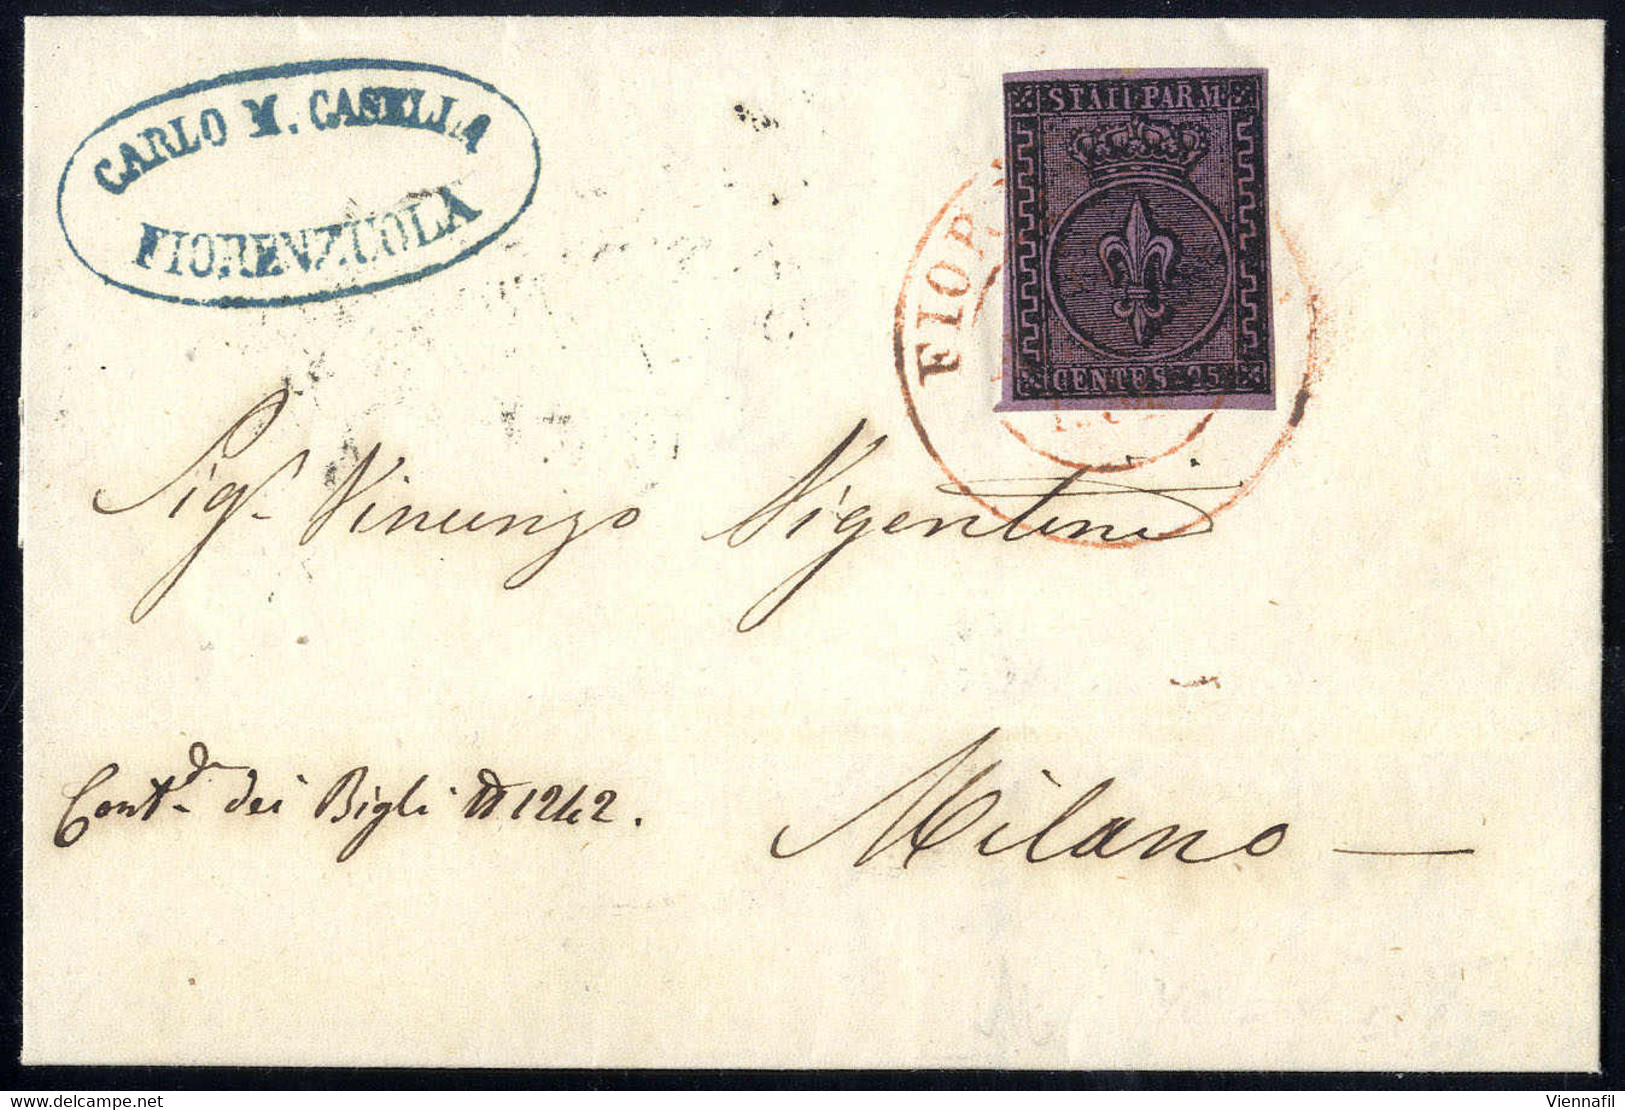 CARLO M. CASELLA
FIORENZUOLA
STATI PARM
CENTES. 25
FIOR
Sigr. Vincenzo Vigentini
Contda dei Bigli N 1242.
Milano
www.delcampe.net
Viennafil